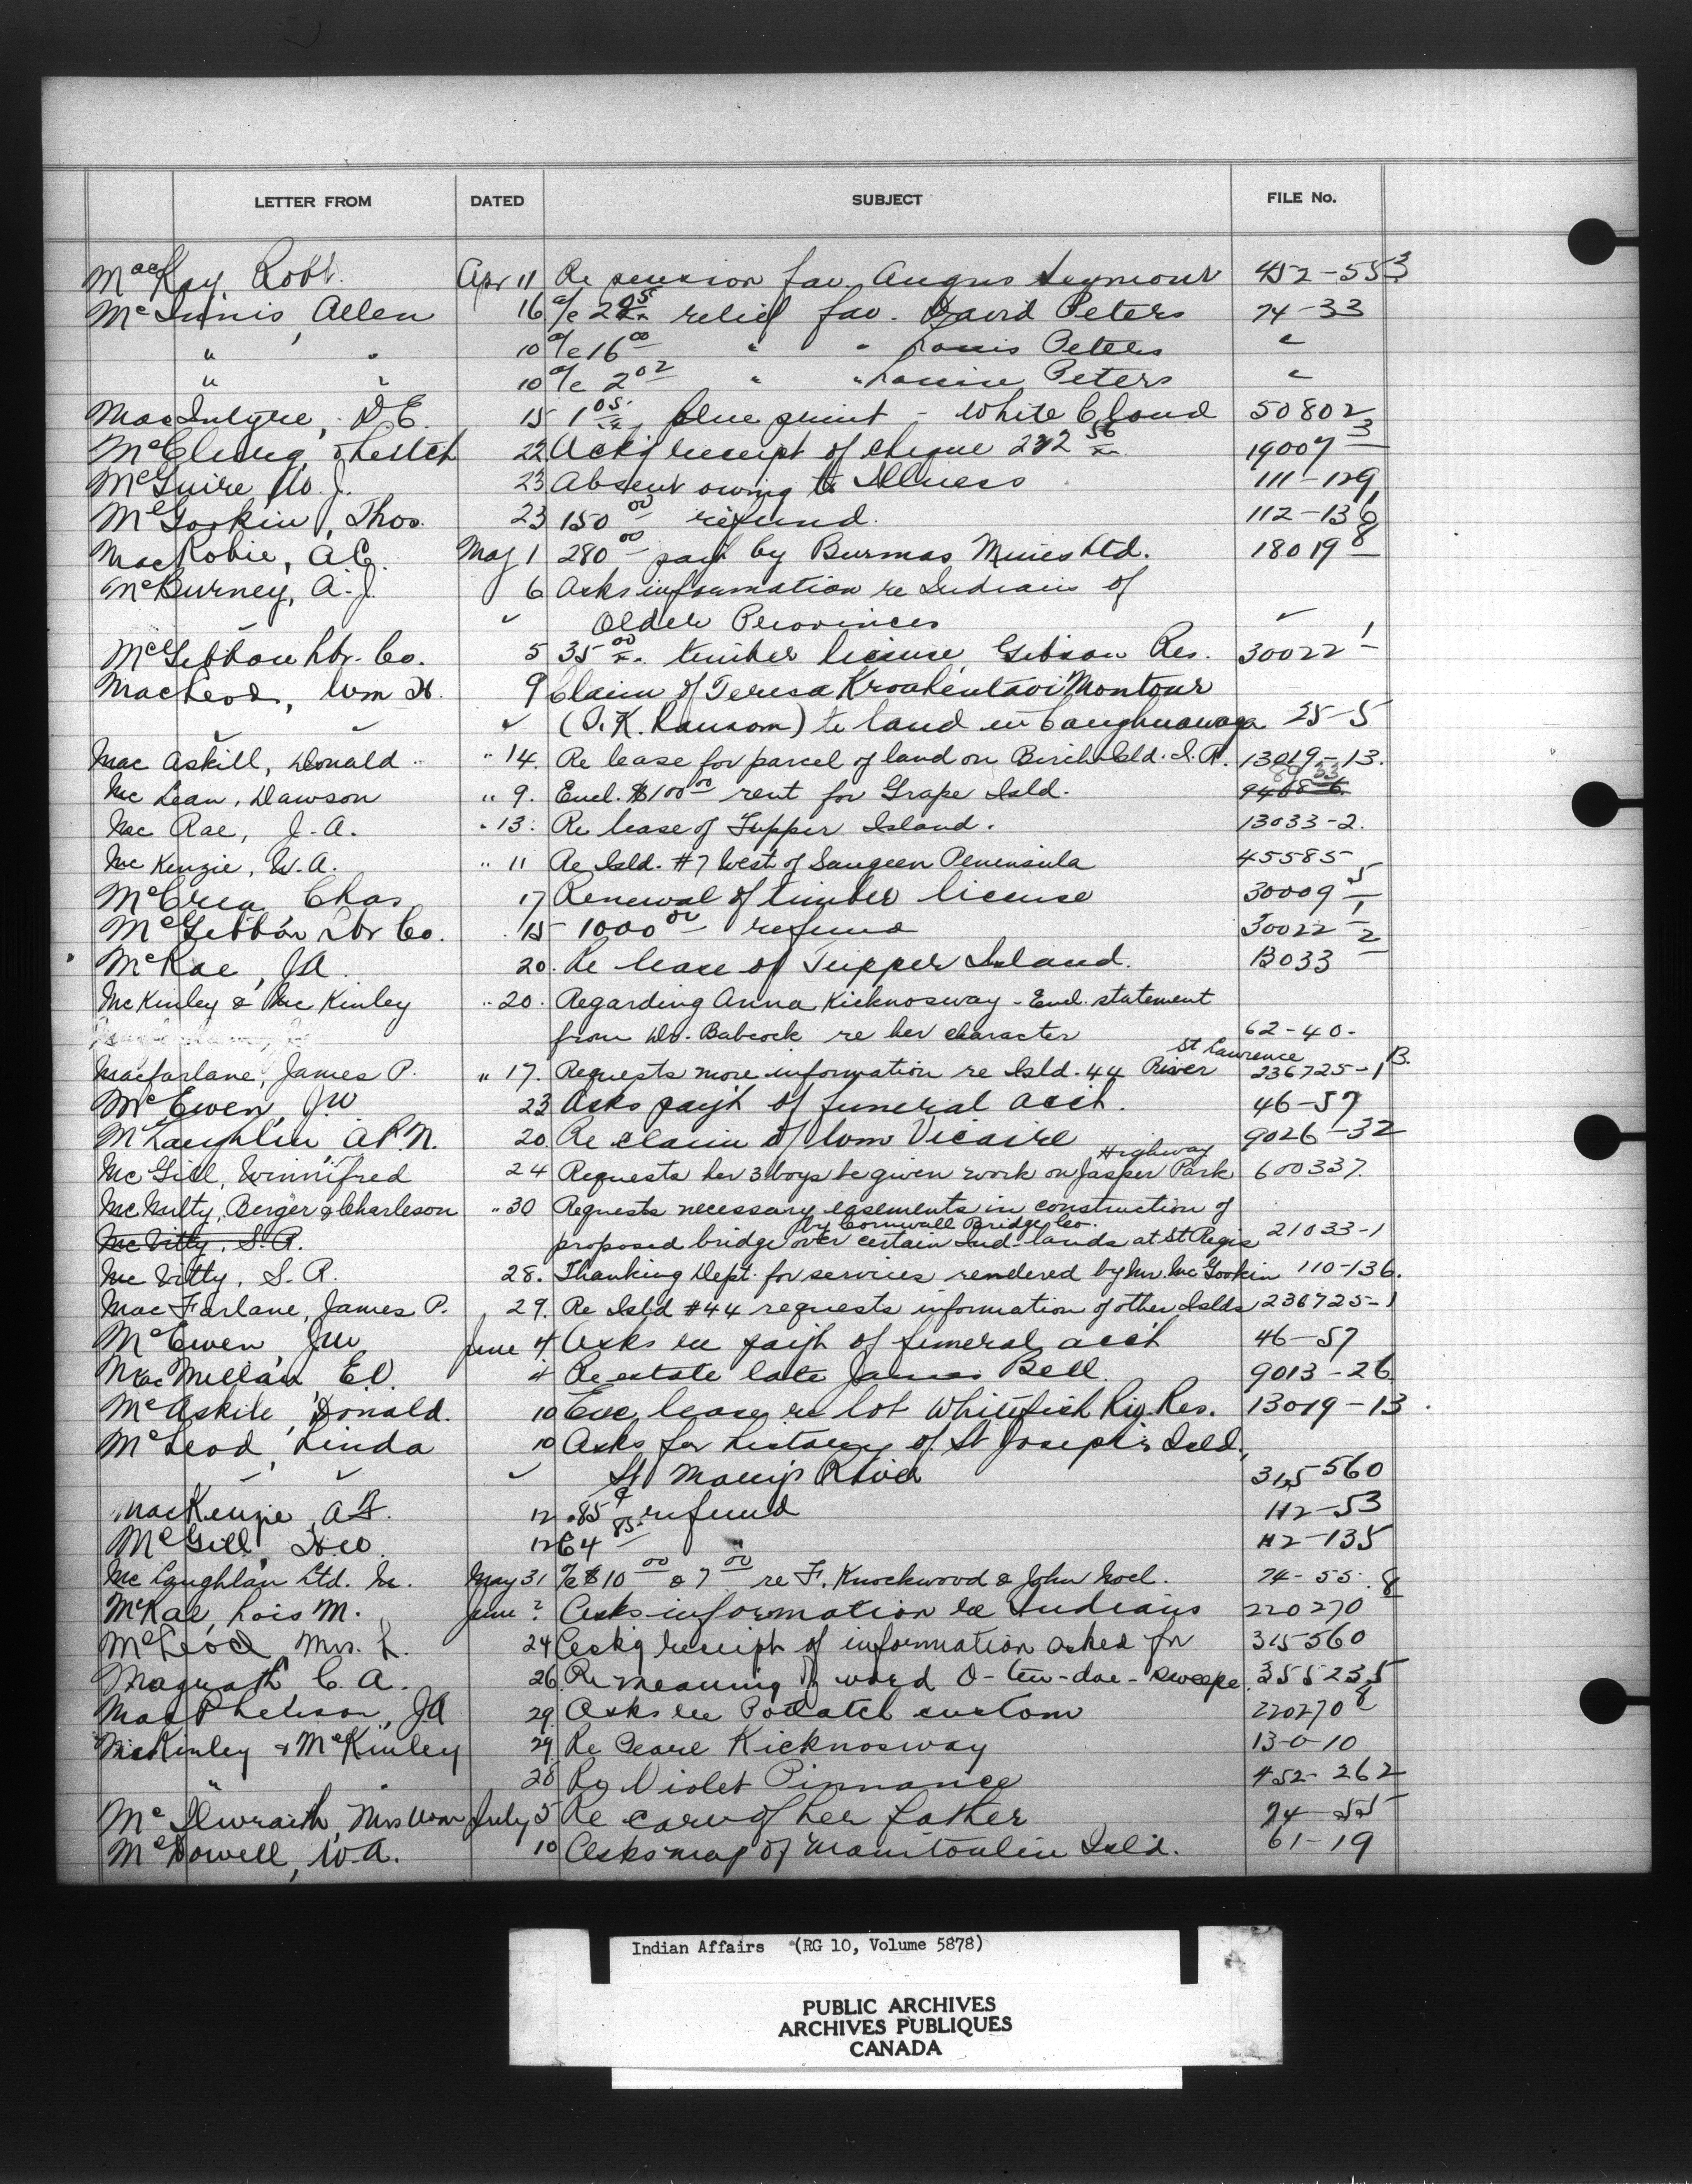 LETTER FROM DATED SUBJECT FILE No.
MacKay, Robt. Apr 11 Re pension fav. Angus Seymour 452-55 3
McInnis, Allen 16 a/c relief fav. David Peters 74-33
" " 10 a/c 16 00 " " Louis Peters "
" " 10 a/c 2 02 " " Louise Peters "
MacIntyre, D.E. 15 1 05 blue print - White Cloud 50802
McClung, & Leitch 22 Ackg receipt of cheque 19007 3
McGuire W. J. 23 Absent owing to Illness 111-129
McGookin, Thos. 23 150 00 refund. 112-136
MacRobie, A.C. May 1 280 00 payt by Burmas Mines Ltd. 18019 8
McBurney, A. J. 6 Asks information re Indians of
" ✓ Older Provinces ✓
McGibbon Lbr. Co. 5 35 00 timber license Gibson Res. 30022 1
MacLeod, Wm H. 9 Claim of Teresa Montour
✓ ✓ ✓ (P. K. Ranson) to land in Caughnawaga 25-5
Mac Askill, Donald " 14. Re lease for parcel of land on Birch Isld. I.R. 13019-13.
Mc Lean, Dawson " 9. Encl. $100 00 rent for Grape Isld.
Mac Rae, J.A. " 13. Re lease of Tupper Island. 13033-2.
Mc Kenzie, W.A. " 11 Re Isld. #7 West of Saugeen Peninsula 45585
McCrea, Chas 17 Renewal of timber license 30009 5
McGibbon Lbr Co. 15 1000 00 refund 30022 1
McRae, J.A. 20. Re lease of Tupper Island. 13033 2
McKinley & Mc Kinley " 20. Regarding Anna Kicknosway - Encl. statement
from Dr. Babcock re her character 62-40-
Macfarlane, James P. " 17. Requests more information re Isld. 44 St Lawrence River 236725-1 B.
McEwen, J.W. 23 Asks payt of funeral acct. 46-57
McLaughlin A.R.N. 20 Re claim of Wm Vicaire 9026-32
Mc Gill, Winnifred 24 Requests her 3 boys be given work on Jasper Park Highway 600337.
Mc Nulty, Berger & Charleson " 30 Requests necessary easements in construction of
Mc Vitty, S.R. proposed bridge by Cornwall Bridge Co. over certain Ind. lands at St Regis 21033-1
Mc Vitty, S.R. 28. Thanking Dept. for services rendered by Mr. Mc Gookin 110-136.
Mac Farlane, James P. 29. Re Isld #44 requests information of other Islds 236725-1
McEwen, J.W. June 4 Asks re payt of funeral acct 46-57
MacMillan E.D. 4 Re estate late James Bell 9013-26
McAskile, Donald. 10 Enc lease re lot Whitefish Res. 13019-13
McLeod, Linda 10 Asks for history of St Joseph's Isld.,
✓ ✓ ✓ St Mary's River 315560
MacKenzie, A.F. 12 .85¢ refund 112-53
McGill, 12 64 85 " 112-135
Mc Laughlan Ltd. M. May 31 a/c $10 00 & 7 00 re F. Knockwood & John Noel. 74-55.
McRae, Lois M. June ? Asks information re Indians 220270 8
McLeod, Mrs. L. 24 Ackg receipt of information asked for 315560
Magrath C. A. 26 Re meaning of word 355235
MacPherson, J.A. 29 Asks re Potlatch custom 220270 8
McKinley & McKinley 29 Re Pearl Kicknosway 13-0-10
" " 28 Re Violet Pinnance 452-262
McIlwraith, Mrs Wm July 5 Re care of her father 74-55
McDowell, W.A. 10 Asks map of Manitoulin Isld. 61-19
Indian Affairs (RG 10, Volume 5878)
PUBLIC ARCHIVES
ARCHIVES PUBLIQUES
CANADA